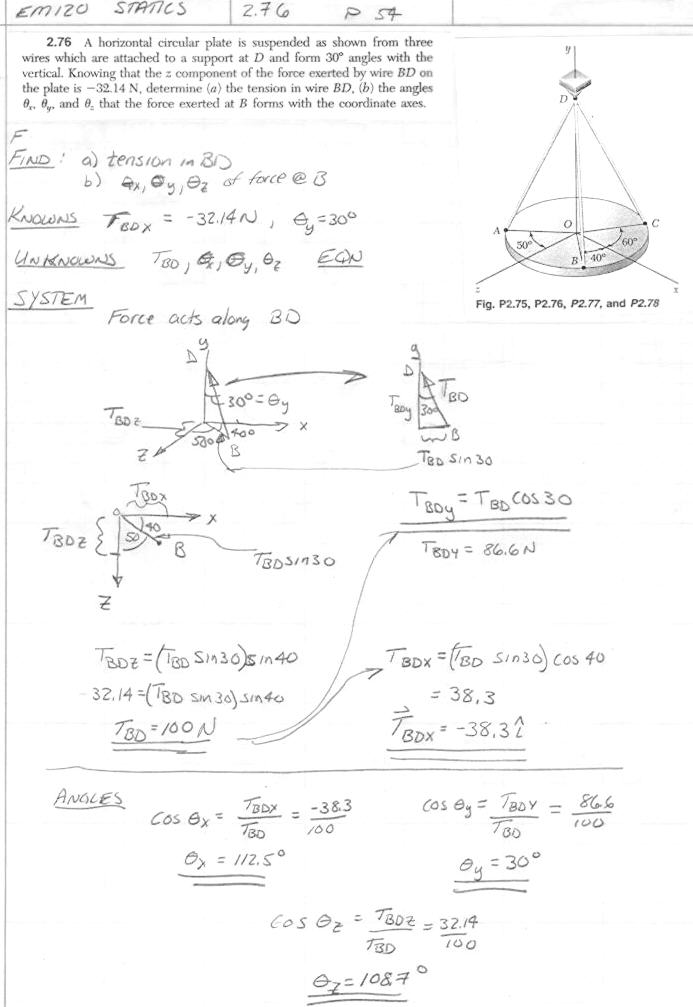 EM120 STATICS 2.76 P 54
2.76 A horizontal circular plate is suspended as shown from three
wires which are attached to a support at D and form 30° angles with the
vertical. Knowing that the z component of the force exerted by wire BD on
the plate is −32.14 N, determine (a) the tension in wire BD, (b) the angles
θx, θy, and θz that the force exerted at B forms with the coordinate axes.
y
D
A
O
C
50°
60°
B
40°
z
x
Fig. P2.75, P2.76, P2.77, and P2.78
F
FIND: a) tension in BD
b) θx, θy, θz of force @ B
KNOWNS FBDX = -32.14N, θy=30°
UNKNOWNS TBD, θx, θy, θz EQN
SYSTEM
Force acts along BD
y
D
30°=θy
TBDZ
x
50° 40°
z
B
y
D
TBD
TBDy 30°
B
TBD SIN 30
TBDX
O
x
40
TBDZ { 50
B
TBDSIN30
Z
TBDy = TBD COS 30
TBDY = 86.6N
TBDZ = (TBD SIN30)SIN40
-32.14 = (TBD SIN 30) SIN40
TBD = 100N
TBDX = (TBD SIN30) COS 40
= 38.3
TBDX = -38.3 î
ANGLES
COS θx = TBDX / TBD = -38.3 / 100
θx = 112.5°
COS θy = TBDY / TBD = 86.6 / 100
θy = 30°
COS θz = TBDZ / TBD = 32.14 / 100
θz = 108.7°